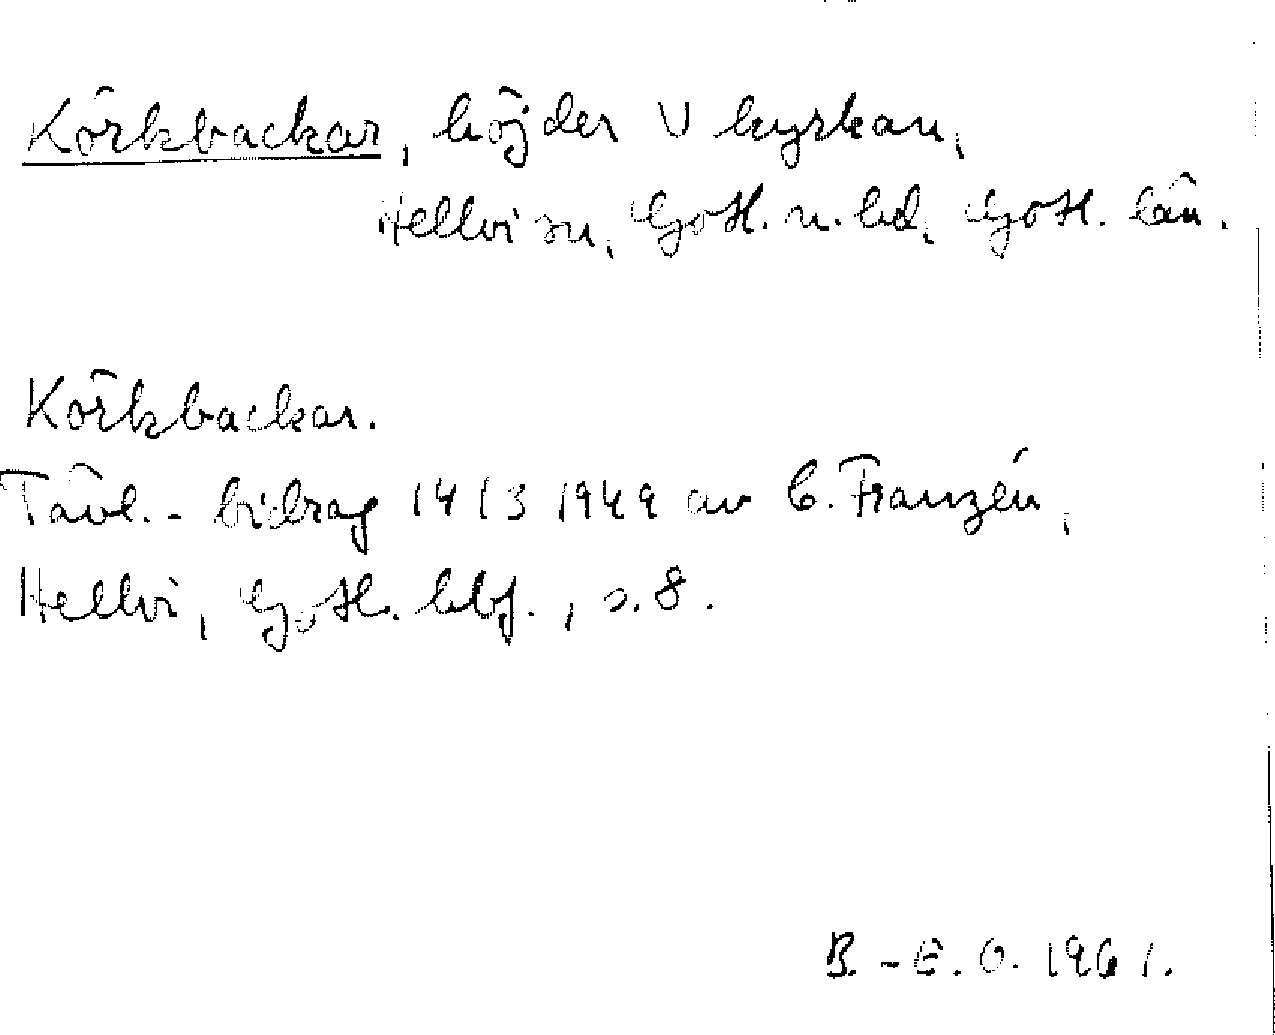 Körkbackar, höjder V kyrkan,
Hellvi sn, Gotl. n. hd, Gotl. län.
Körkbackar.
Tävl.-bidrag 14/3 1949 av C. Franzén,
Hellvi, Gotl. hbf., s. 8.
B.-E. O. 1961.